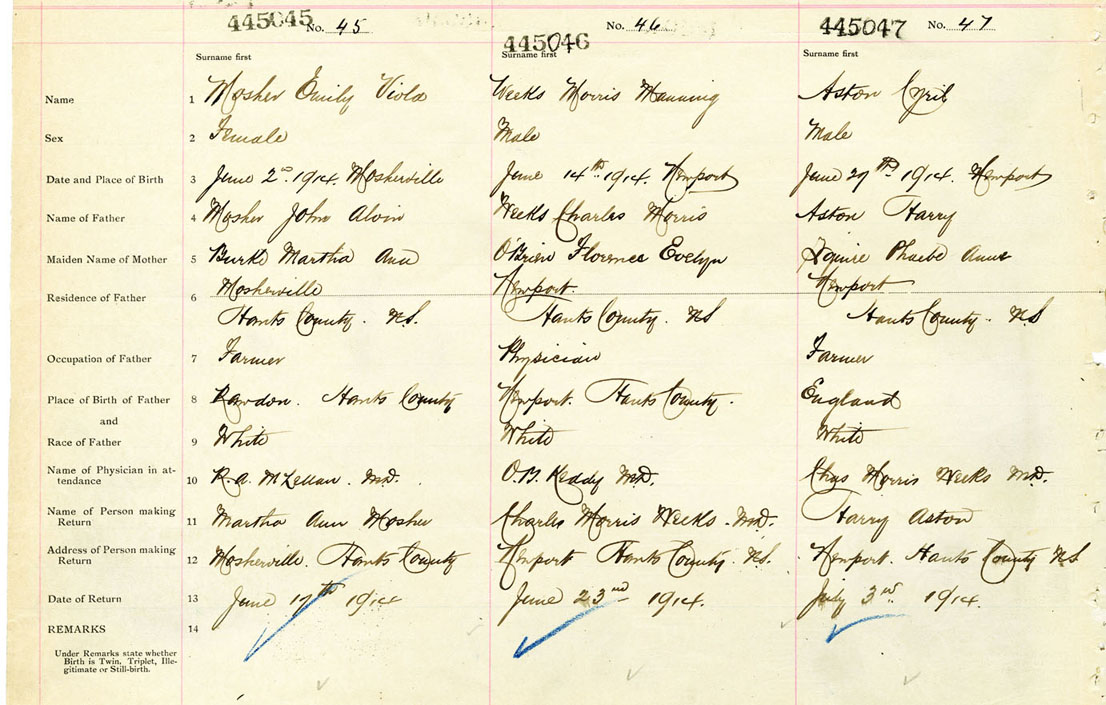 445045 No. 45
445046 No. 46
445047 No. 47
Surname first Surname first Surname first
Name 1 Mosher Emily Viola Weeks Morris Manning Aston Cyril
Sex 2 Female Male Male
Date and Place of Birth 3 June 2nd 1914. Mosherville June 14th 1914. Newport June 27th 1914. Newport
Name of Father 4 Mosher John Alvin Weeks Charles Morris Aston Harry
Maiden Name of Mother 5 Burke Martha Ann O'Brien Florence Evelyn Squire Phoebe Annie
Residence of Father 6 Mosherville Newport. Newport
Hants County. N.S. Hants County. N.S Hants County. N.S
Occupation of Father 7 Farmer Physician Farmer
Place of Birth of Father 8 Rawdon. Hants County Newport. Hants County. England
and
Race of Father 9 White White White
Name of Physician in at-
tendance 10 R.A. McLellan. M.D. O.B. Keddy M.D. Chas Morris Weeks M.D.
Name of Person making
Return 11 Martha Ann Mosher Charles Morris Weeks. M.D. Harry Aston
Address of Person making
Return 12 Mosherville. Hants County Newport Hants County. N.S. Newport. Hants County N.S
Date of Return 13 June 17th 1914 June 23nd 1914. July 3rd 1914.
REMARKS 14
Under Remarks state whether
Birth is Twin, Triplet, Ille-
gitimate or Still-birth.